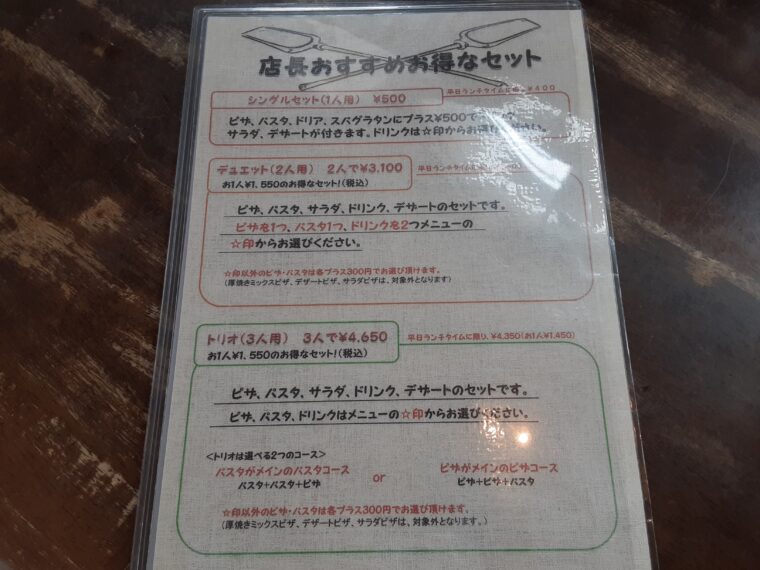 店長おすすめお得なセット
シングルセット(1人用) ¥500
平日ランチタイムに限り、¥400
ピザ、パスタ、ドリア、スパグラタンにプラス¥500で
サラダ、デザートが付きます。ドリンクは☆印からお選びください。
デュエット(2人用) 2人で¥3,100
平日ランチタイムに
お1人¥1,550のお得なセット!(税込)
ピザ、パスタ、サラダ、ドリンク、デザートのセットです。
ピザを1つ、パスタ1つ、ドリンクを2つメニューの
☆印からお選びください。
☆印以外のピザ・パスタは各プラス300円でお選び頂けます。
(厚焼きミックスピザ、デザートピザ、サラダピザは、対象外となります)
トリオ(3人用) 3人で¥4,650
平日ランチタイムに限り、¥4,350(お1人¥1,450)
お1人¥1,550のお得なセット!(税込)
ピザ、パスタ、サラダ、ドリンク、デザートのセットです。
ピザ、パスタ、ドリンクはメニューの☆印からお選びください。
<トリオは選べる2つのコース>
パスタがメインのパスタコース or ピザがメインのピザコース
パスタ+パスタ+ピザ ピザ+ピザ+パスタ
☆印以外のピザ・パスタは各プラス300円でお選び頂けます。
(厚焼きミックスピザ、デザートピザ、サラダピザは、対象外となります。)